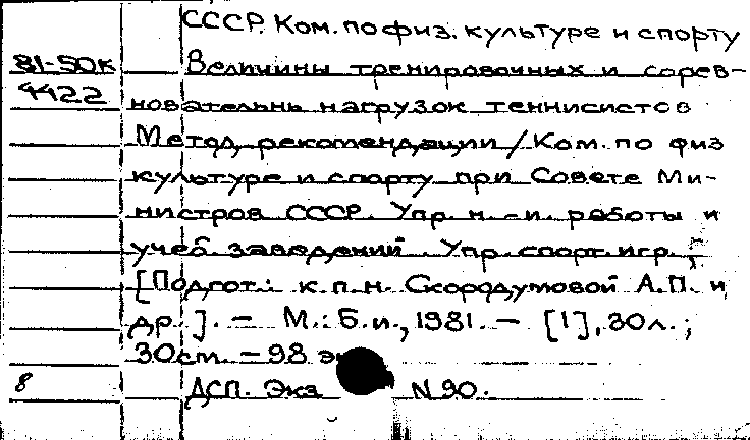 СССР. Ком. по физ. культуре и спорту
81-50к Величины тренировочных и сорев-
4422 новательнь нагрузок теннисистов
Метод. рекомендации / Ком. по физ
культуре и спорту при Совете Ми-
нистров СССР. Упр. н.-и. работы и
учеб. заведений. Упр. спорт. игр.;
[Подгот.: к.п.н. Скородумовой А.П. и
др.]. – М.: Б.и., 1981. – [1], 30л.;
30см. – 98 э
8 ДСП. Экз N 90.